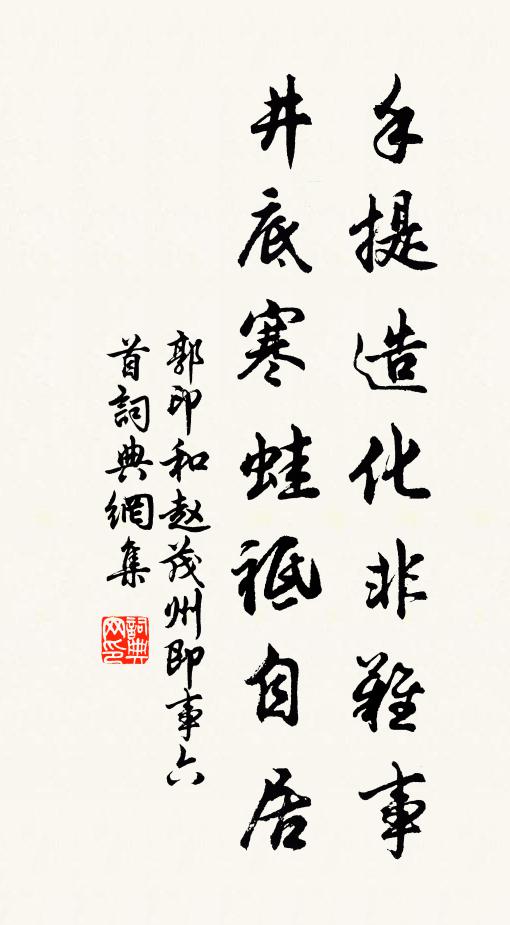 手提造化非難事
井底寒蛙祗自居
郭印和赵茂州即事六
首詞典網集
詞典
网印